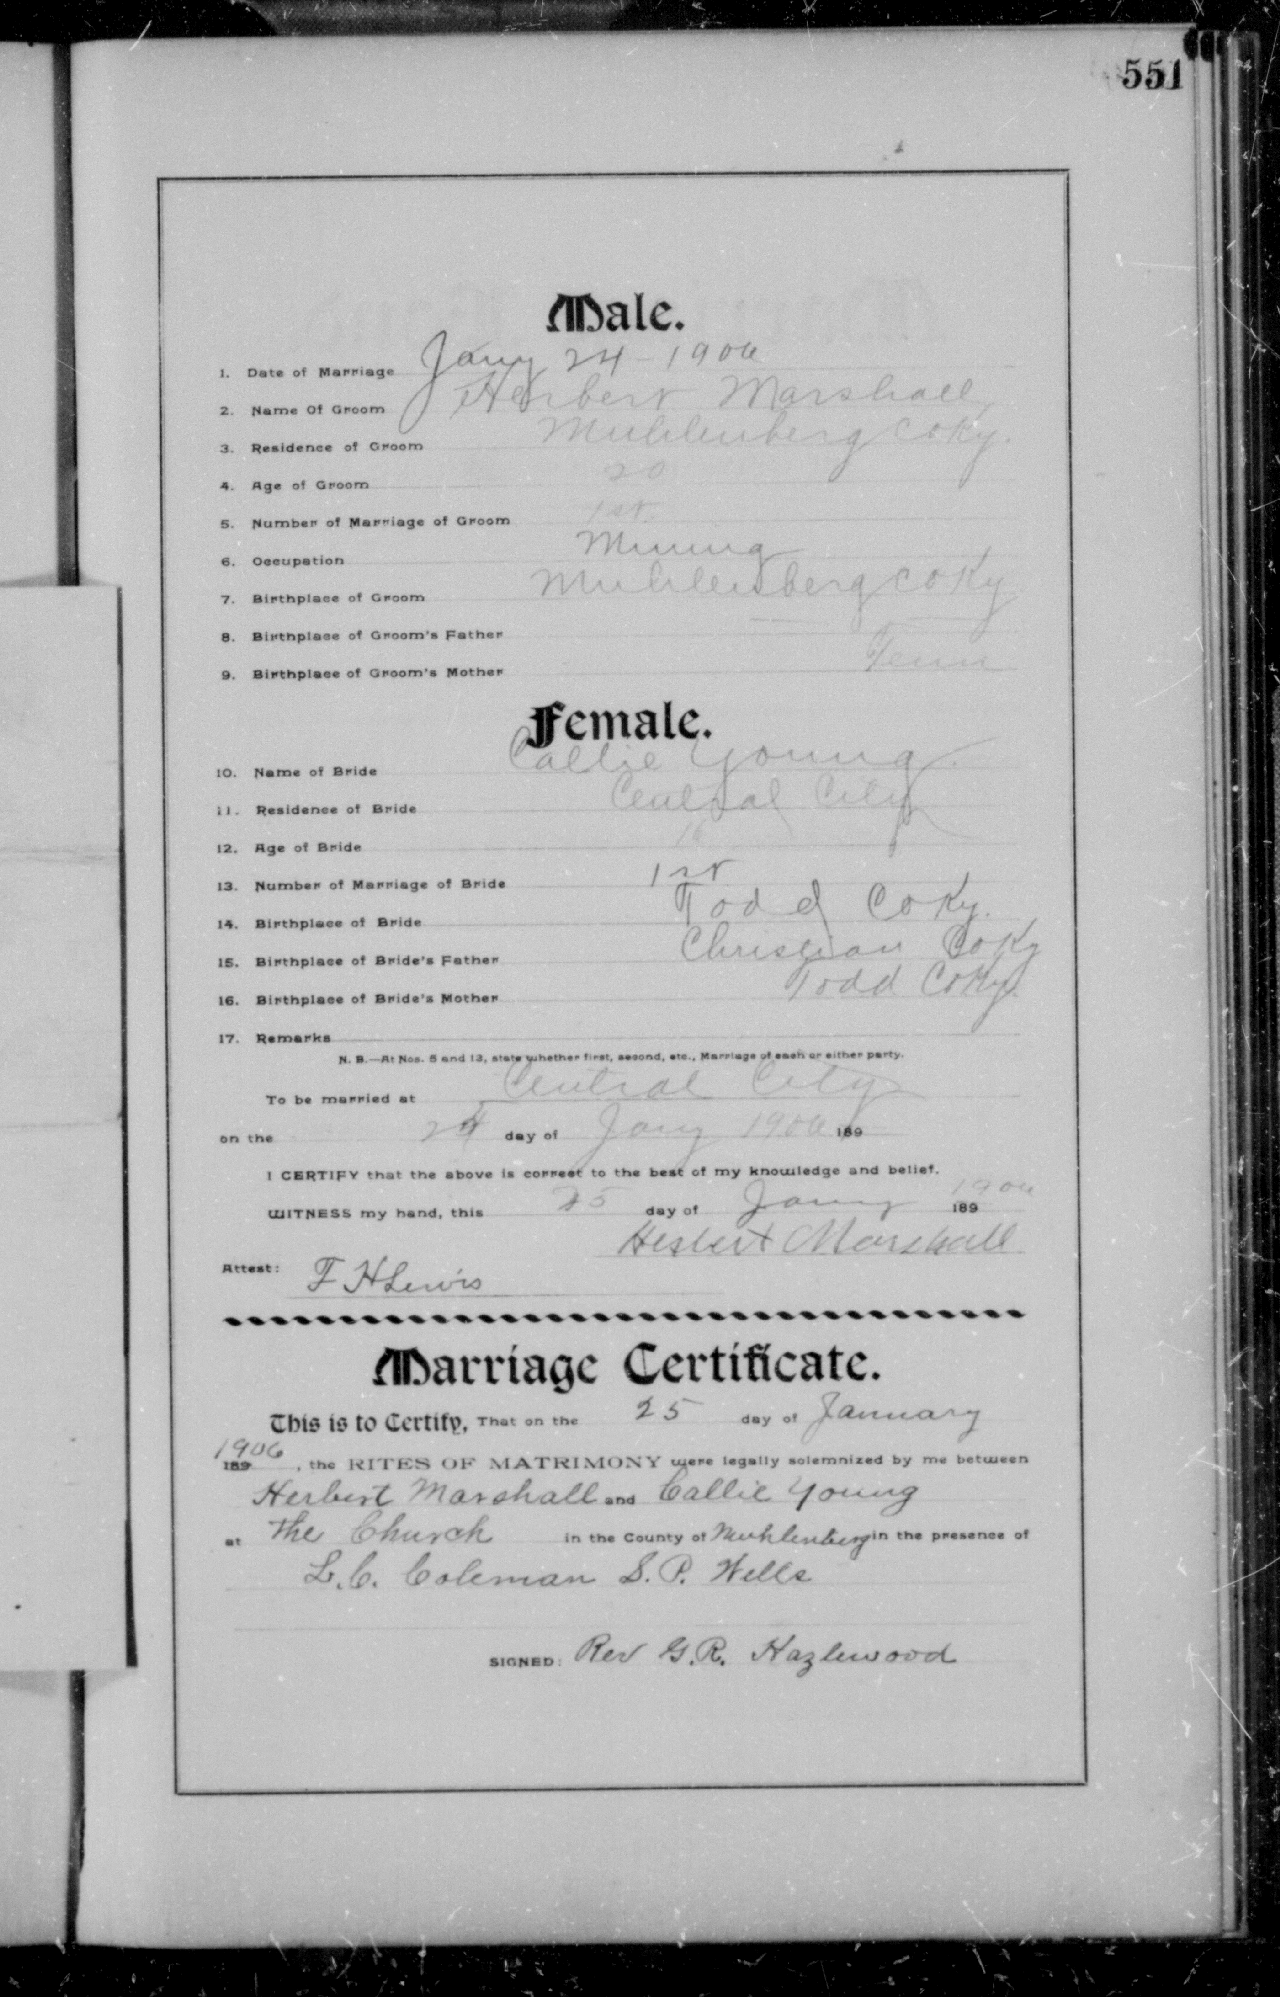 551
Male.
1. Date of Marriage Jany 24 - 1906
2. Name Of Groom Herbert Marshall
3. Residence of Groom Muhlenberg Co Ky.
4. Age of Groom 20
5. Number of Marriage of Groom 1st
6. Occupation Mining
7. Birthplace of Groom Muhlenberg Co Ky
8. Birthplace of Groom's Father
9. Birthplace of Groom's Mother Tenn
Female.
10. Name of Bride Callie Young.
11. Residence of Bride Central City
12. Age of Bride 16
13. Number of Marriage of Bride 1st
14. Birthplace of Bride Todd Co Ky.
15. Birthplace of Bride's Father Christian Co Ky
16. Birthplace of Bride's Mother Todd Co Ky.
17. Remarks
N. B.—At Nos. 5 and 13, state whether first, second, etc., Marriage of each or either party.
To be married at Central City
on the 24 day of Jany 1906 189
I CERTIFY that the above is correct to the best of my knowledge and belief.
WITNESS my hand, this 25 day of Jany 1906 189
Herbert Marshall
Attest: F H Lewis
Marriage Certificate.
This is to Certify, That on the 25 day of January
1906 189 , the RITES OF MATRIMONY were legally solemnized by me between
Herbert Marshall and Callie Young
at The Church in the County of Muhlenberg in the presence of
L. C. Coleman S. P. Wells
SIGNED: Rev G. R. Hazlewood